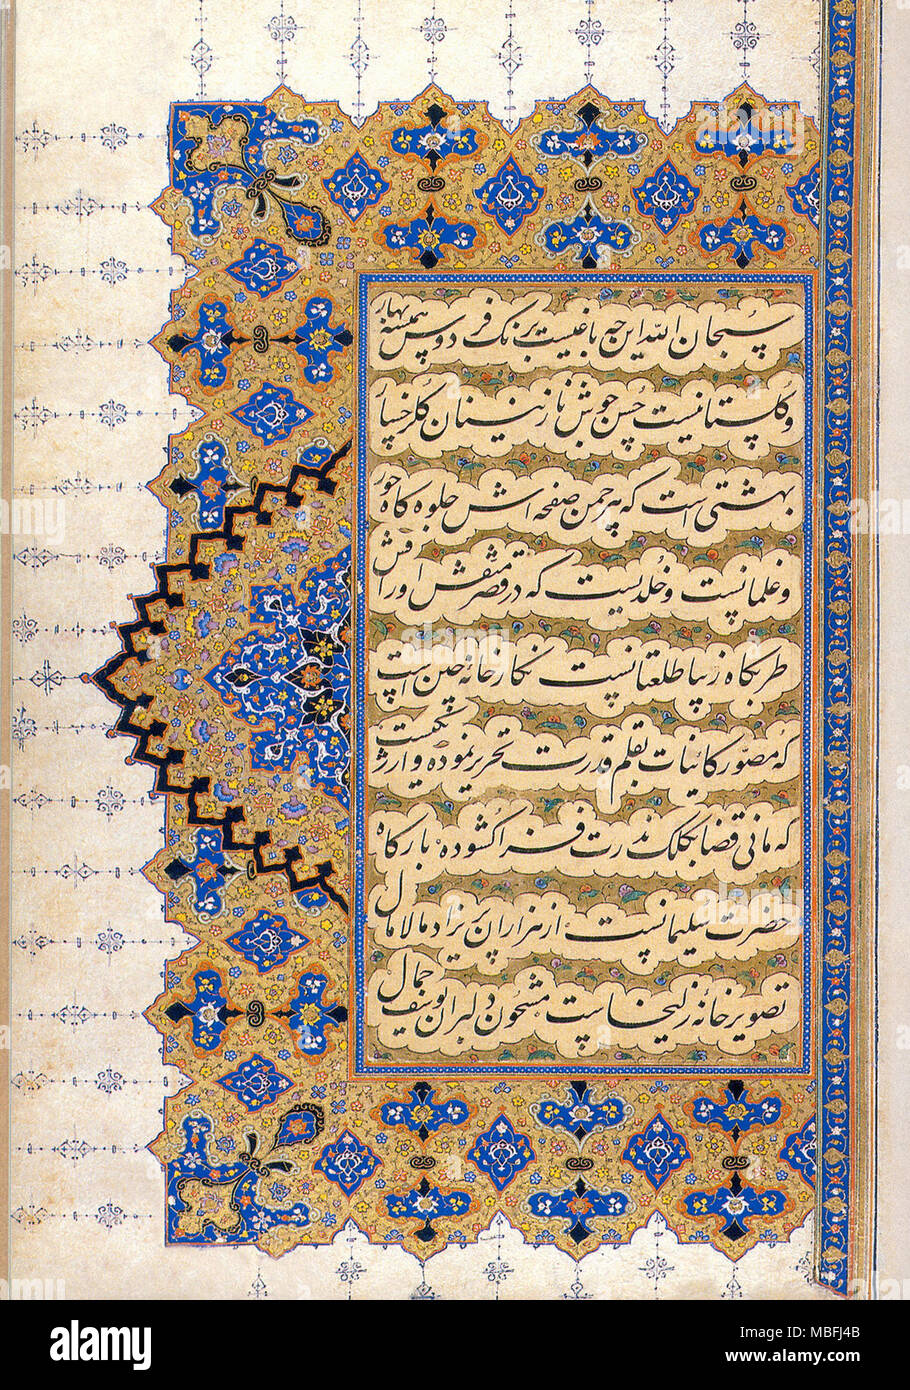 سبحان الله این چه باغیست برنک فردوس همیشه بهار
و کلستانیست چون حسن جوش نازنینان کلرخسار
بهشتی است که بهر چمن صفحه اش جلوه کاه حور
و غلمانیست و خلدیست که در قصر منقش اوراقش
طربکاه زیبا طلعتانیست نکارخانهٔ چین است
که مصور کاینات بقلم قدرت تحریر نموده و ارژنکیست
که مانی قضا بکلک ندرت فزا کشوده بارکاه
حضرت سلیمانیست از هزاران پری نژاد مالامال
تصویر خانهٔ زلیخاست مشحون دلبران یوسف جمال
alamy
Image ID: MBFJ4B
www.alamy.com